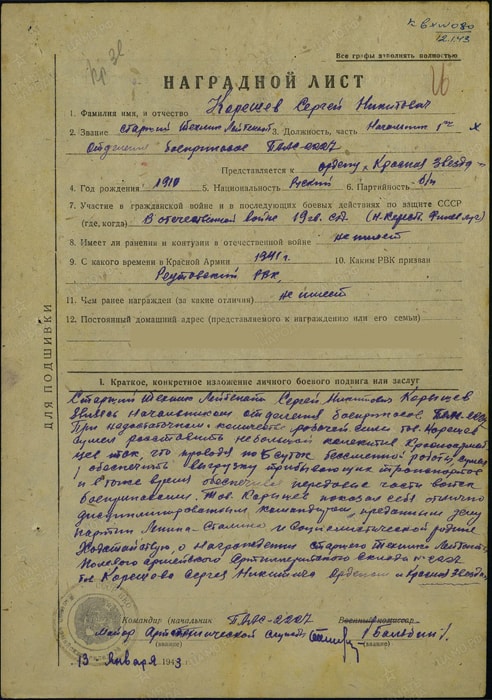 12.1.43
Все графы заполнять полностью
НАГРАДНОЙ ЛИСТ
1. Фамилия имя, и отчество Карешев Сергей Никитович
2. Звание Старший Техник Лейтенант 3. Должность, часть Начальник 1го
Отделения боеприпасов ПАС-2227
Представляется к ордену "Красная Звезда"
4. Год рождения 1910 5. Национальность Русский 6. Партийность б/п
7. Участие в гражданской войне и в последующих боевых действиях по защите СССР
(где, когда) В отечественной войне
8. Имеет ли ранения и контузии в отечественной войне не имеет
9. С какого времени в Красной Армии 1941 г. 10. Каким РВК призван
Реутовский РВК
11. Чем ранее награжден (за какие отличия) не имеет
12. Постоянный домашний адрес (представляемого к награждению или его семьи)
ДЛЯ ПОДШИВКИ
I. Краткое, конкретное изложение личного боевого подвига или заслуг
Старший Техник Лейтенант Сергей Никитович Карешев
являясь Начальником отделения боеприпасов ПАС-2227
При недостаточном количестве рабочей силы тов. Карешев
сумел расставить небольшой коллектив Красноармей
цев так, что проводя по суток бессменной работы сумел
обеспечить выгрузку прибывающих транспортов
и в тоже время обеспечил передовые части войск
боеприпасами. Тов. Карешев показал себя отлично
дисциплинированным командиром, преданным делу
партии Ленина-Сталина и Социалистической родине
Ходатайствую о награждении старшего Техника Лейтенанта
Полевого армейского Артиллерийского склада № 2227
тов. Карешова Сергея Никитича Орденом "Красная Звезда"
Командир (начальник ПАС-2227 Военный комиссар
майор Артиллерийской службы
(звание) (звание)
13 Января 1943 г.